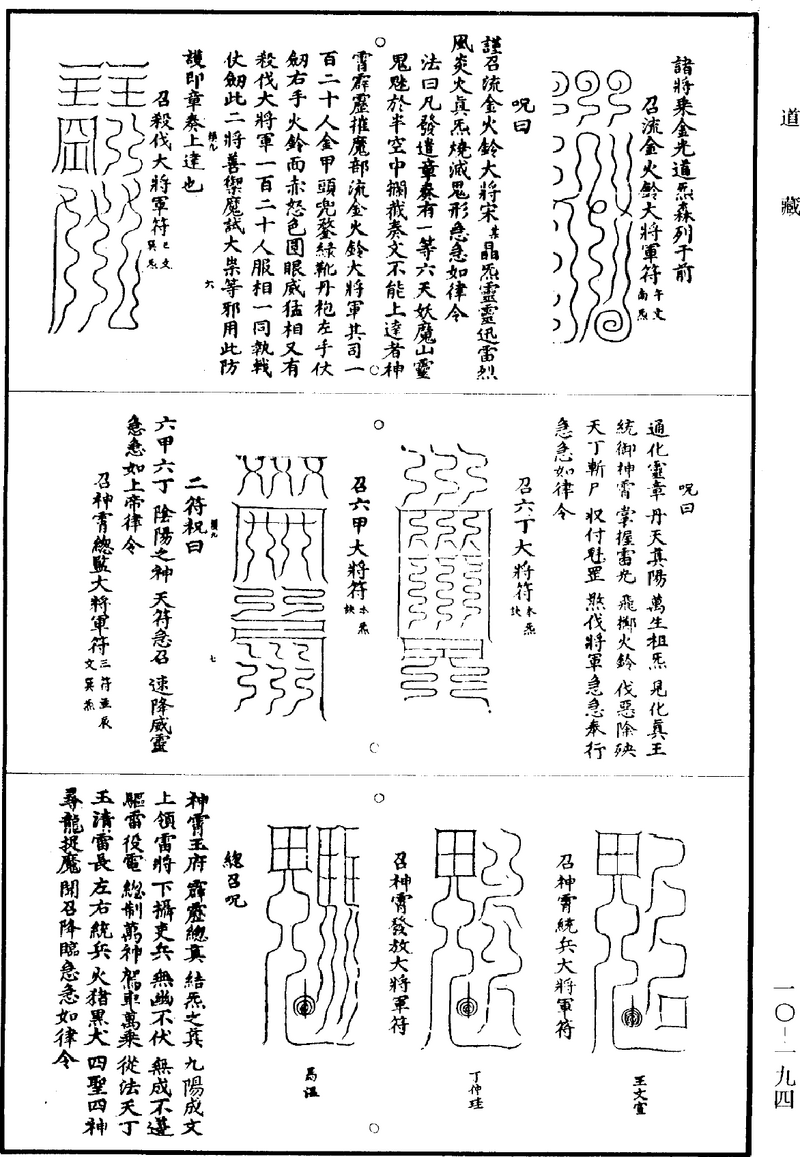 道藏
諸將乘金光道炁森列于前
召流金火鈴大將軍符午文南炁
呪曰
謹召流金火鈴大將宋晶炁靈靈迅雷烈
風炎火真炁燒滅鬼形急急如律令
法曰凡發遣章奏有一等六天妖魔山靈
鬼魅於半空中攔截奏文不能上達者神
霄霹靂摧魔部流金火鈴大將軍其司一
百二十人金甲頭兜鍪綠靴丹袍左手伏
劒右手火鈴而赤怒色圓眼威猛相又有
殺伐大將軍一百二十人服相一同執戟
仗劒此二將善禦魔試大祟等邪用此防
護即章奏上達也
六
召殺伐大將軍符巳文巽炁
呪曰
通化靈章 丹天真陽 萬生祖炁 見化真王
統御神霄 掌握雷光 飛擲火鈴 伐惡除殃
天丁斬尸 収付魁罡 煞伐將軍 急急奉行
急急如律令
召六丁大將符本炁訣
召六甲大將符本炁訣
二符祝曰
七
六甲六丁 陰陽之神 天符急召 速降威靈
急急如上帝律令
召神霄總監大將軍符三符並辰文巽炁
王文宣
召神霄統兵大將軍符
丁仲珪
召神霄發放大將軍符
馬溫
總召呪
神霄玉府 霹靂總真 結炁之真 九陽成文
上領雷將 下攝吏兵 無幽不伏 無成不遵
驅雷役電 總制萬神 駕車萬乘 從法天丁
玉清雷長 左右統兵 火猪黑犬 四聖四神
尋龍捉魔 聞召降臨 急急如律令
一〇-一九四